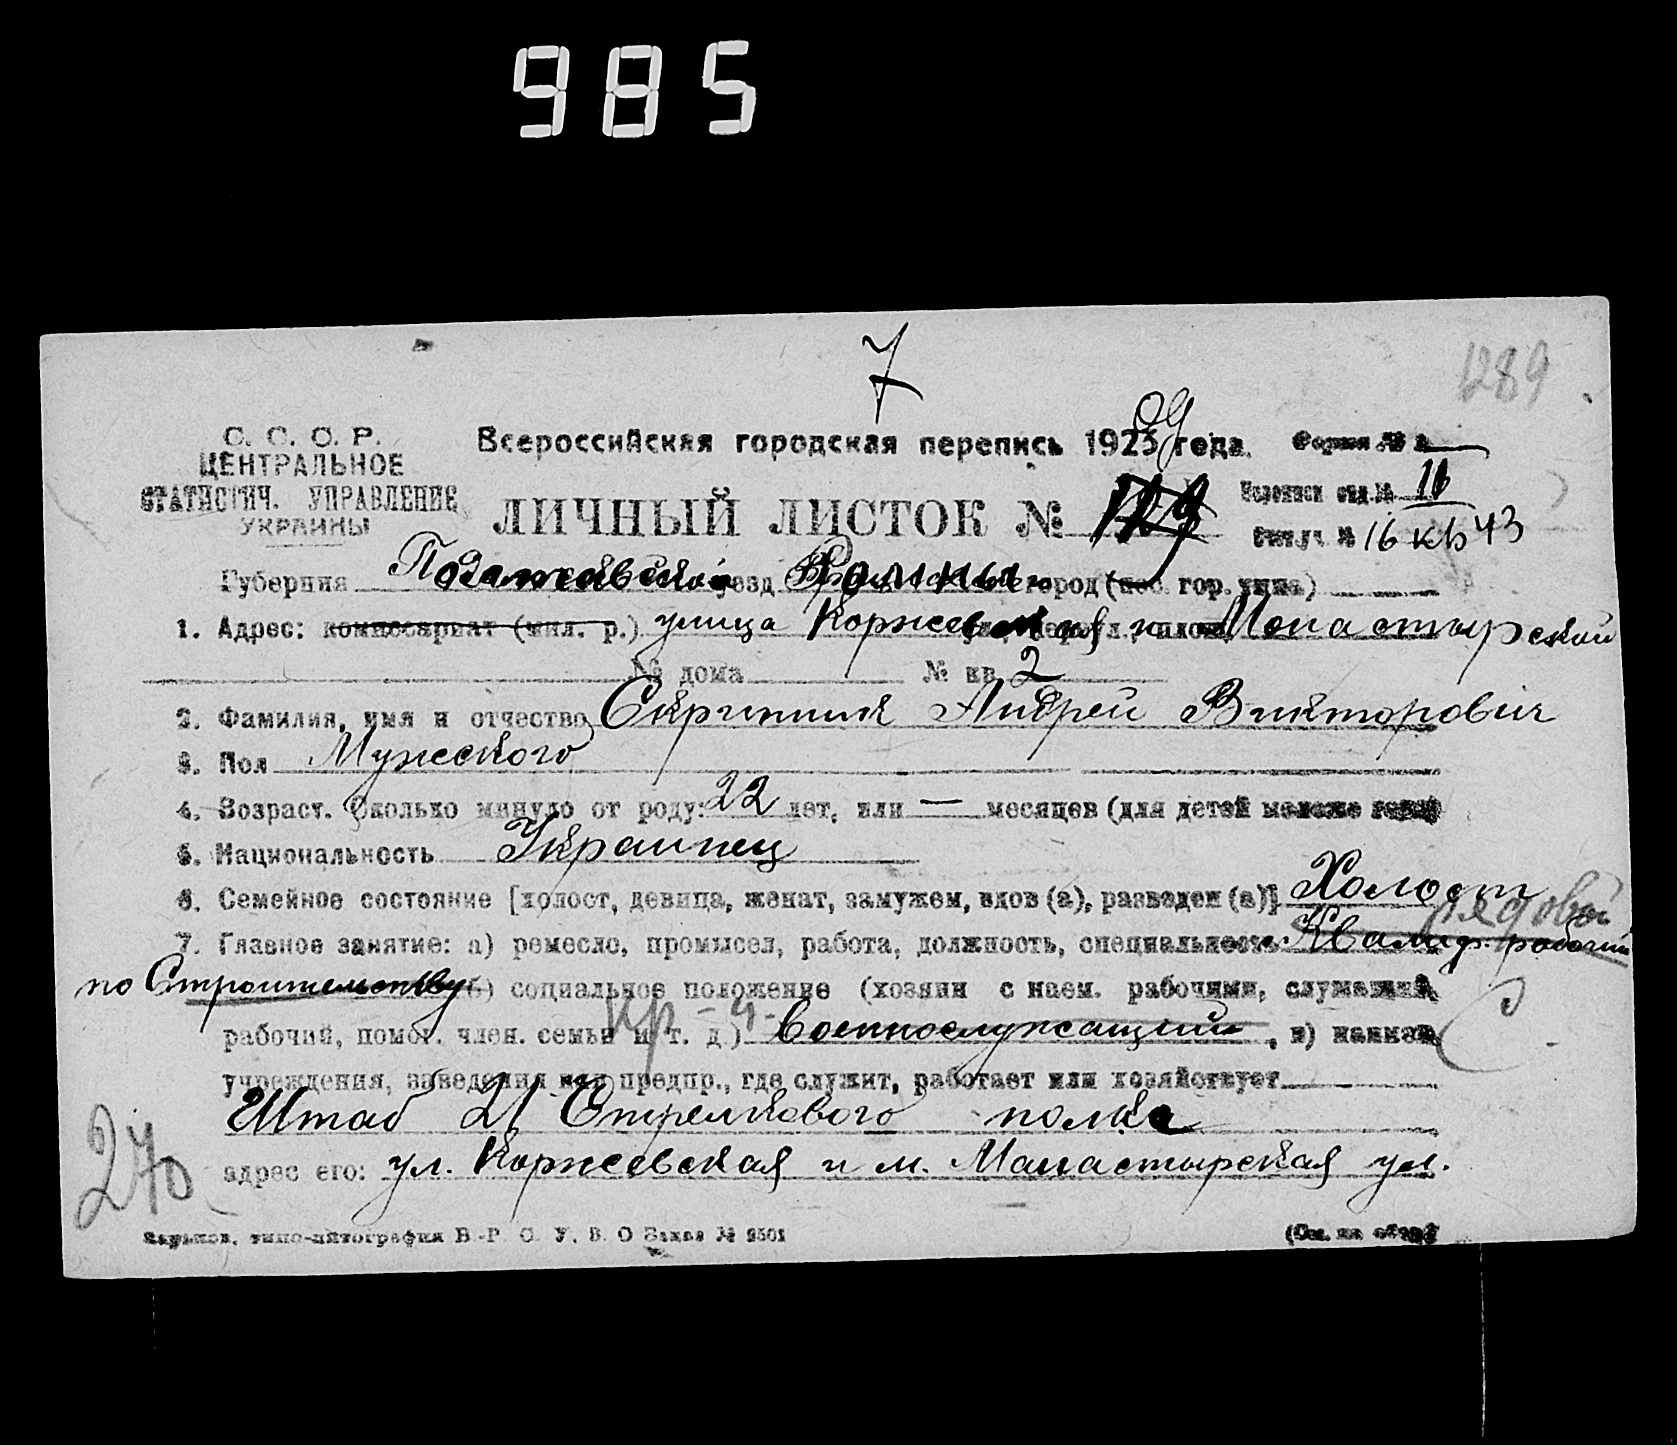 985
7
1289
С. С. С. Р.
ЦЕНТРАЛЬНОЕ
СТАТИСТИЧ. УПРАВЛЕНИЕ
УКРАИНЫ
Всероссийская городская перепись 1923 года. Форма №
ЛИЧНЫЙ ЛИСТОК № 129
отд. № 16
№ 16 кв 43
Губерния Полтавская уезд Ромны город (пос. гор. типа)
1. Адрес: комиссариат (мил. р.) улица Коржевская и Монастырской
№ дома № кв. 2
2. Фамилия, имя и отчество Скрипник Андрей Викторовіч
3. Пол Мужского
4. Возраст. Сколько минуло от роду: 22 лет, или — месяцев (для детей моложе года)
5. Национальность Украинец
6. Семейное состояние [холост, девица, женат, замужем, вдов (а), разведен (а)] Холост
рядовой
7. Главное занятие: а) ремесло, промысел, работа, должность, специальность: Квалиф. рабочий
по Строительству б) социальное положение (хозяин с наем. рабочими, служащий,
рабочий, помог. член. семьи и т. д.) Военнослужащий, в) назван.
кр-ч.
учреждения, заведения или предпр., где служит, работает или хозяйствует
Штаб 21 Стрелкового полка
адрес его: ул. Коржевская и м. Манастырская ул.
270
Харьков, типо-литография В.-Р. С. У. В. О Заказ № 9501
(См. на обор.)